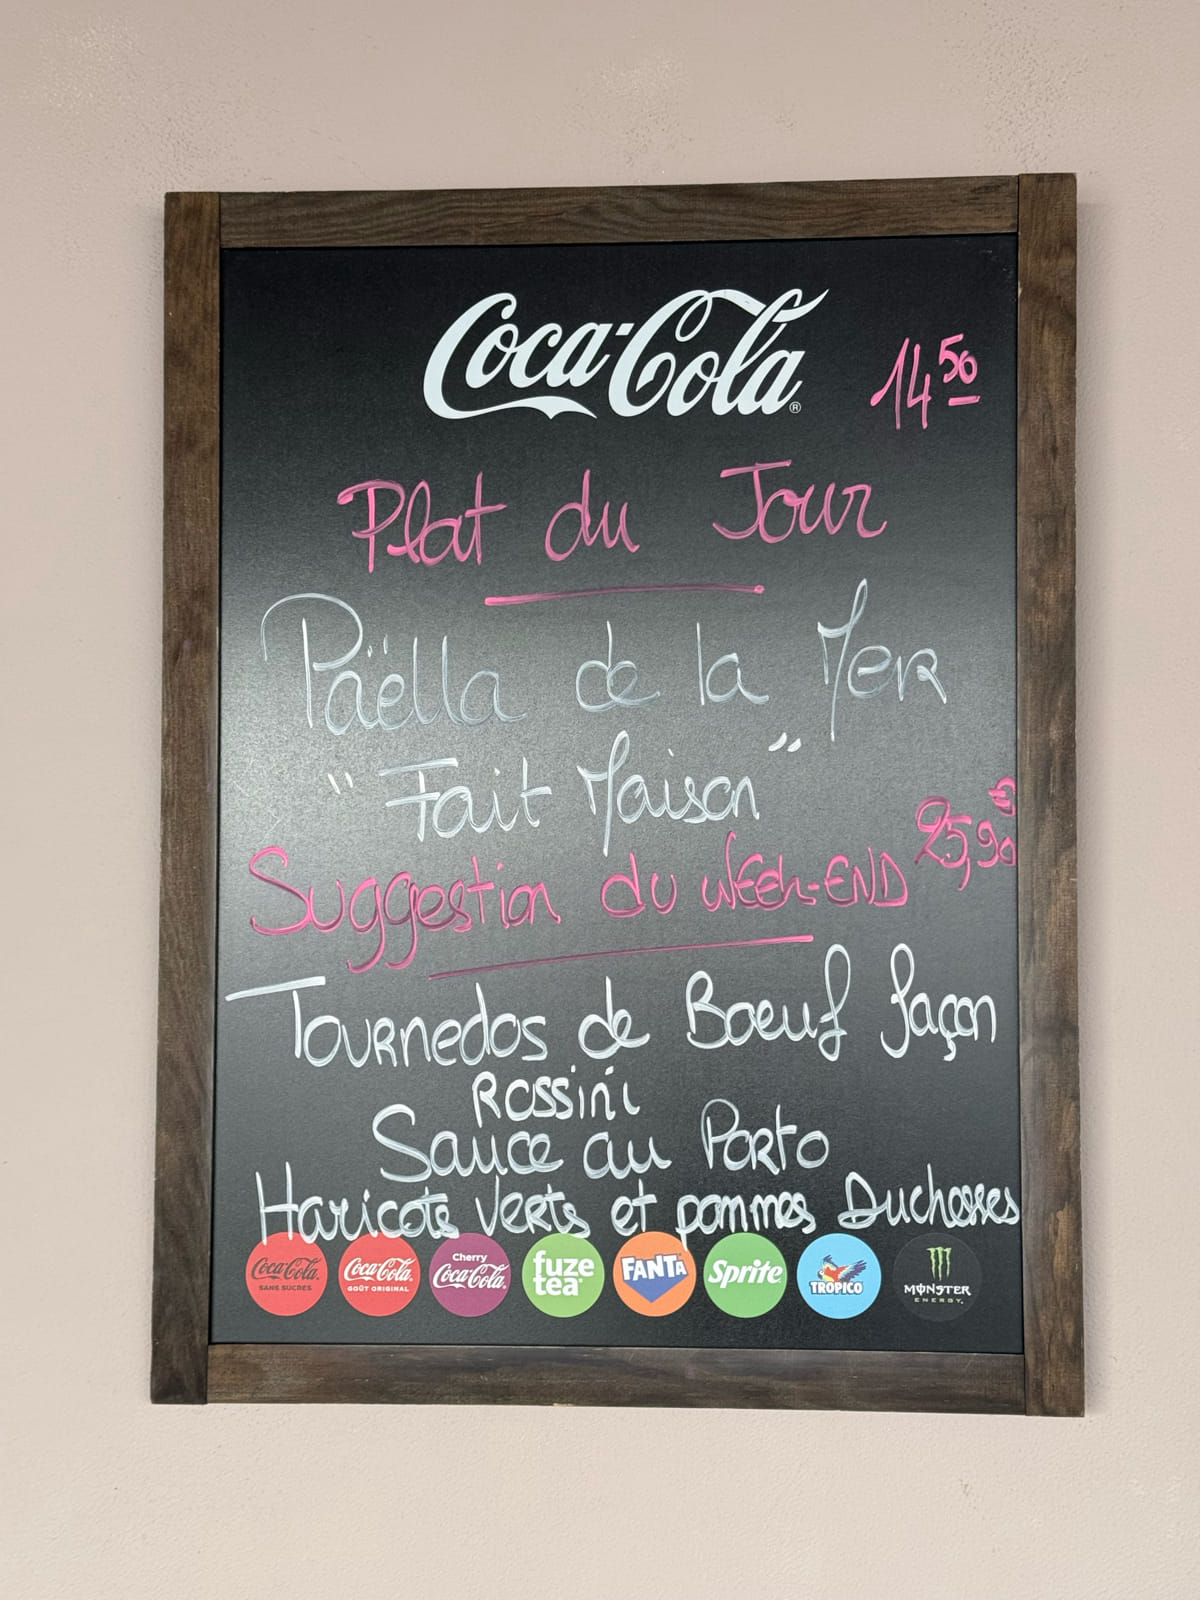 Coca-Cola
14 50
Plat du Jour
Paëlla de la Mer
"Fait Maison"
25,90€
Suggestion du WEEk-END
Tournedos de Boeuf façon
Rossini
Sauce au Porto
Haricots Verts et pommes Duchesses
Coca-Cola SANS SUCRES
Coca-Cola GOÛT ORIGINAL
Cherry Coca-Cola
fuze tea
FANTA
Sprite
TROPICO
MONSTER ENERGY